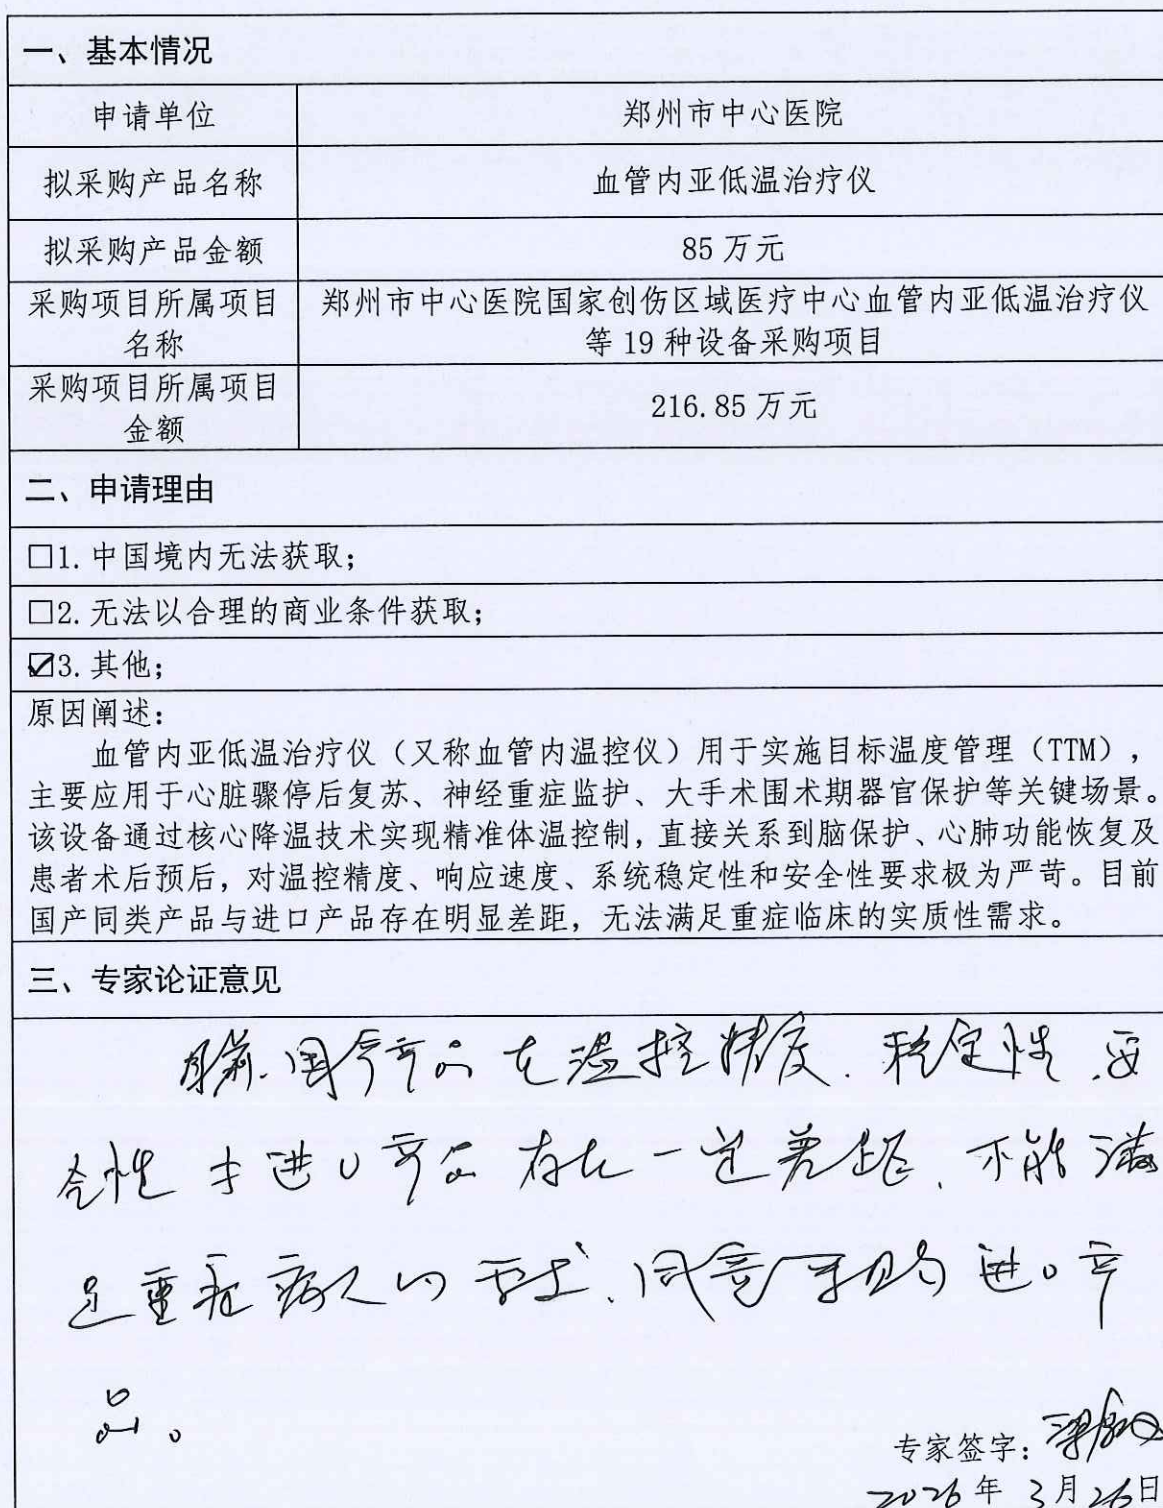 一、基本情况
申请单位 郑州市中心医院
拟采购产品名称 血管内亚低温治疗仪
拟采购产品金额 85万元
采购项目所属项目名称 郑州市中心医院国家创伤区域医疗中心血管内亚低温治疗仪
等19种设备采购项目
采购项目所属项目金额 216.85万元
二、申请理由
□1.中国境内无法获取；
□2.无法以合理的商业条件获取；
☑3.其他；
原因阐述：
血管内亚低温治疗仪（又称血管内温控仪）用于实施目标温度管理（TTM），
主要应用于心脏骤停后复苏、神经重症监护、大手术围术期器官保护等关键场景。
该设备通过核心降温技术实现精准体温控制，直接关系到脑保护、心肺功能恢复及
患者术后预后，对温控精度、响应速度、系统稳定性和安全性要求极为严苛。目前
国产同类产品与进口产品存在明显差距，无法满足重症临床的实质性需求。
三、专家论证意见
目前、国产产品在温控精度、稳定性、安
全性与进口产品存在一定差距、不能满
足重症病人的需求、同意采购进口产
品。
专家签字：
2026年3月26日